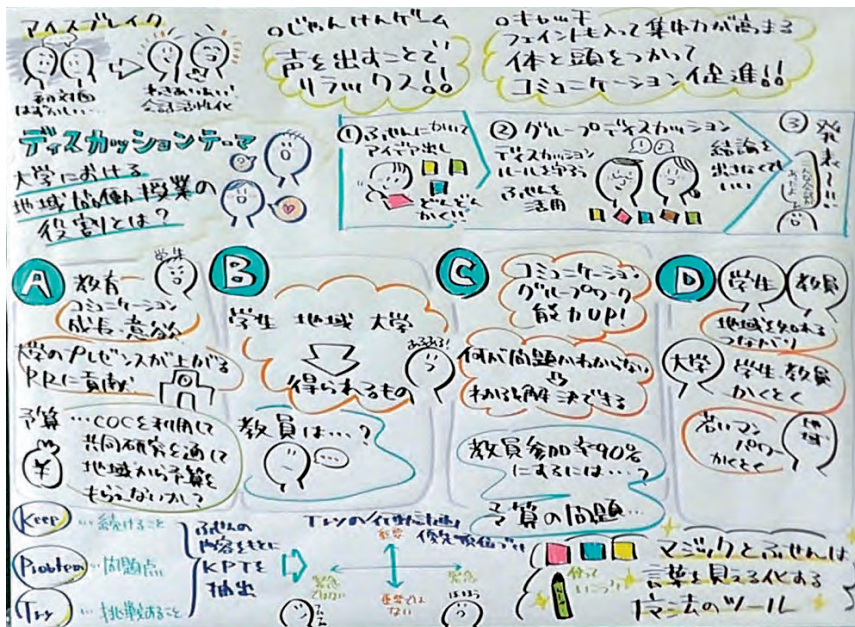 アイスブレイク
初対面
はずかしい…
わきあいあい!
会話活性化
○じゃんけんゲーム
声を出すことで
リラックス!!
○キャッチ
フェイントも入って集中力が高まる
体と頭をつかって
コミュニケーション促進!!
ディスカッションテーマ
大学における
地域協働授業の
役割とは?
① ふせんにかいて
アイデア出し
どんどん
かく!!
② グループディスカッション
ディスカッション
ルールを守ろう
ふせんを
活用
結論を
出さなくても
いい
③ 発表〜!!
A
学生
教育
コミュニケーション
成長・意欲
大学のプレゼンスが上がる
PRに貢献
予算…COCを利用して
共同研究を通して
地域から予算を
もらえないかし?
¥
B
学生 地域 大学
得られるもの
あるある!
教員は…?
…
C
コミュニケーション
グループワーク
能力UP!
何が問題かわからない
わかる&解決できる
教員参加率90%
にするには…?
予算の問題…
D
学生
教員
地域を知れる
つながり
大学
学生、教員
かくとく
若いマン
パワー
かくとく
地域
Keep …続けること
Problem …問題点
Try …挑戦すること
ふせんの
内容をもとに
KPTを
抽出
重要
緊急
ではない
緊急
重要では
ない
マジックとふせんは
言葉を見える化する
魔法のツール